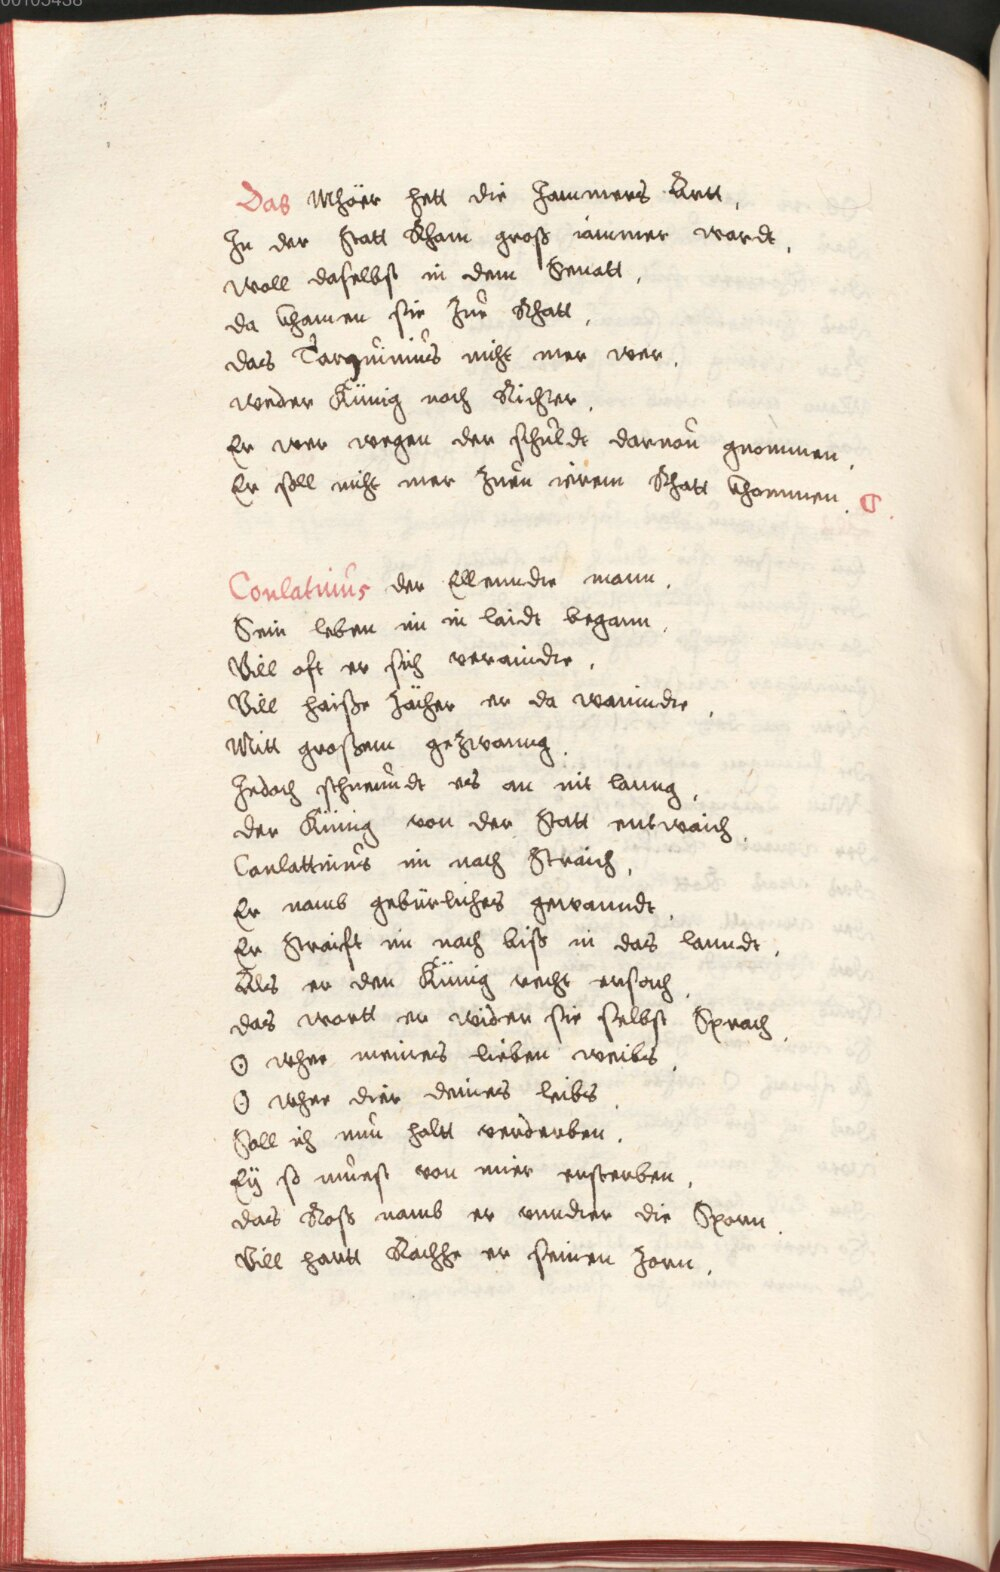 Das Mhäer hett die Jammers Artt,
In der Statt Rhom groß iammer wardt,
woll daselbst in dem Senatt,
da khamen sie zue Rhatt,
das Tarquinius nicht mer wer,
weder Künig noch Richter,
Er wer wegen der schuldt daruon gnommen,
Er soll nicht mer zuen irem Rhatt khommen.
Conlatinus der Ellenndte mann,
Sein leben im in laidt begann,
Vill oft er sich verainndte,
Vill haiße Zächer er da wainndte,
Mitt großem gezwanng,
Jedoch stuenndt es an nit lanng,
der Künig von der Statt entwaich,
Conlattinus im nach straich,
Er namb gebürliches gewanndt,
Er Straifft im nach biß in das lanndt,
Als er den Künig recht ersach,
das wortt er wider sie selbst Sprach,
O whee meines lieben weibs,
O whee dier deines leibs,
Soll ich nun haltt verderben,
Eÿ so muest von mier ersterben,
das Roß namb er vnndter die Sporn,
Vill hartt Rachhe er seinen Zorn,